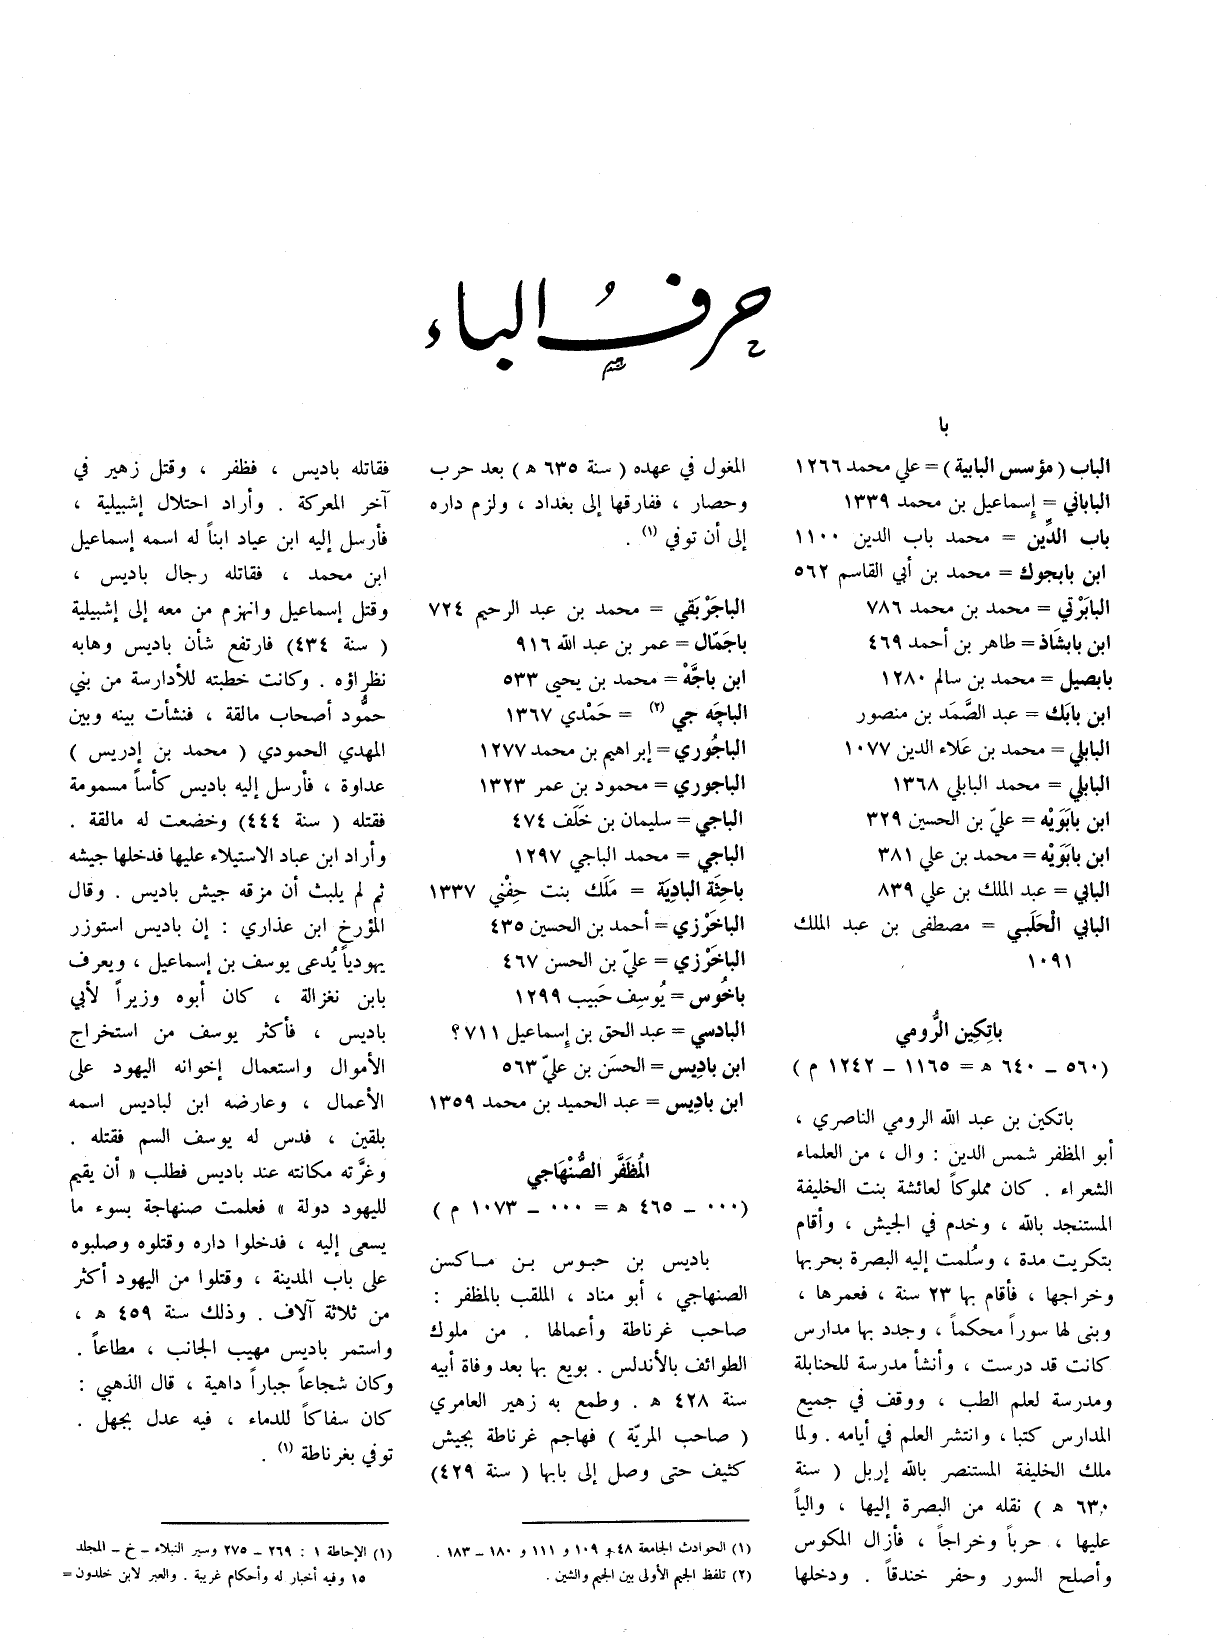 حرف الباء
با
الباب ( مؤسس البابية ) = علي محمد ١٢٦٦
الباباني = إسماعيل بن محمد ١٣٣٩
باب الدِّين = محمد باب الدين ١١٠٠
ابن بابجوك = محمد بن أبي القاسم ٥٦٢
البابَرْتي = محمد بن محمد ٧٨٦
ابن بابشَاذ = طاهر بن أحمد ٤٦٩
بابصيل = محمد بن سالم ١٢٨٠
ابن بابَك = عبد الصَّمَد بن منصور
البابلي = محمد بن عَلاء الدين ١٠٧٧
البابلي = محمد البابلي ١٣٦٨
ابن بابَوَيْه = عليّ بن الحسين ٣٢٩
ابن بابَوَيْه = محمد بن علي ٣٨١
البابي = عبد الملك بن علي ٨٣٩
البابي الْحَلَبي = مصطفى بن عبد الملك
١٠٩١
باتكِين الرُّومي
(٥٦٠ – ٦٤٠ ه = ١١٦٥ – ١٢٤٢ م )
باتكين بن عبد الله الرومي الناصري ،
أبو المظفر شمس الدين : وال ، من العلماء
الشعراء . كان مملوكاً لعائشة بنت الخليفة
المستنجد بالله ، وخدم في الجيش ، وأقام
بتكريت مدة ، وسُلمت إليه البصرة بحربها
وخراجها ، فأقام بها ٢٣ سنة ، فعمرها ،
وبنى لها سوراً محكماً ، وجدد بها مدارس
كانت قد درست ، وأنشأ مدرسة للحنابلة
ومدرسة لعلم الطب ، ووقف في جميع
المدارس كتبا ، وانتشر العلم في أيامه . ولما
ملك الخليفة المستنصر بالله إربل ( سنة
٦٣٠ ه ) نقله من البصرة إليها ، والياً
عليها ، حرباً وخراجاً ، فأزال المكوس
وأصلح السور وحفر خندقاً . ودخلها
المغول في عهده ( سنة ٦٣٥ ه ) بعد حرب
وحصار ، ففارقها إلى بغداد ، ولزم داره
إلى أن توفي (١) .
الباجَرْبَقي = محمد بن عبد الرحيم ٧٢٤
باجَمّال = عمر بن عبد الله ٩١٦
ابن باجَّهْ = محمد بن يحيى ٥٣٣
الباجَه جي (٢) = حَمْدي ١٣٦٧
الباجُوري = إبراهيم بن محمد ١٢٧٧
الباجوري = محمود بن عمر ١٣٢٣
الباجي = سليمان بن خَلَف ٤٧٤
الباجي = محمد الباجي ١٢٩٧
باحِثَة البادِيَة = مَلَك بنت حِفْني ١٣٣٧
الباخَرْزي = أحمد بن الحسين ٤٣٥
الباخَرْزي = عليّ بن الحسن ٤٦٧
باخُوس = يُوسِف حَبيب ١٢٩٩
البادسي = عبد الحق بن إسماعيل ٧١١؟
ابن بادِيس = الحسَن بن عليّ ٥٦٣
ابن بادِيس = عبد الحميد بن محمد ١٣٥٩
المُظَفَّر الصُّنْهَاجي
(٠٠٠ – ٤٦٥ ه = ٠٠٠ – ١٠٧٣ م )
باديس بن حبوس بن ماكسن
الصنهاجي ، أبو مناد ، الملقب بالمظفر :
صاحب غرناطة وأعمالها . من ملوك
الطوائف بالأندلس . بويع بها بعد وفاة أبيه
سنة ٤٢٨ ه . وطمع به زهير العامري
( صاحب المريّة ) فهاجم غرناطة بجيش
كثيف حتى وصل إلى بابها ( سنة ٤٢٩)
فقاتله باديس ، فظفر ، وقتل زهير في
آخر المعركة . وأراد احتلال إشبيلية ،
فأرسل إليه ابن عياد ابناً له اسمه إسماعيل
ابن محمد ، فقاتله رجال باديس ،
وقتل إسماعيل وانهزم من معه إلى إشبيلية
( سنة ٤٣٤) فارتفع شأن باديس وهابه
نظراؤه . وكانت خطبته للأدارسة من بني
حمُّود أصحاب مالقة ، فنشأت بينه وبين
المهدي الحمودي ( محمد بن إدريس )
عداوة ، فأرسل إليه باديس كأساً مسمومة
فقتله ( سنة ٤٤٤) وخضعت له مالقة .
وأراد ابن عباد الاستيلاء عليها فدخلها جيشه
ثم لم يلبث أن مزقه جيش باديس . وقال
المؤرخ ابن عذاري : إن باديس استوزر
يهودياً يُدعى يوسف بن إسماعيل ، ويعرف
بابن نغزالة ، كان أبوه وزيراً لأبي
باديس ، فأكثر يوسف من استخراج
الأموال واستعمال إخوانه اليهود على
الأعمال ، وعارضه ابن لباديس اسمه
بلقين ، فدس له يوسف السم فقتله .
وغرَّته مكانته عند باديس فطلب « أن يقيم
لليهود دولة » فعلمت صنهاجة بسوء ما
يسعى إليه ، فدخلوا داره وقتلوه وصلبوه
على باب المدينة ، وقتلوا من اليهود أكثر
من ثلاثة آلاف . وذلك سنة ٤٥٩ ه ،
واستمر باديس مهيب الجانب ، مطاعاً .
وكان شجاعاً جباراً داهية ، قال الذهبي :
كان سفاكاً للدماء ، فيه عدل بجهل .
توفي بغرناطة (١) .
(١) الحوادث الجامعة ٤٨ و ١٠٩ و ١١١ و ١٨٠ – ١٨٣ .
(٢) تلفظ الجيم الأولى بين الجيم والشين .
(١) الإحاطة ١ : ٢٦٩ – ٢٧٥ وسير النبلاء – خ – المجلد
١٥ وفيه أخبار له وأحكام غريبة . والعبر لابن خلدون =